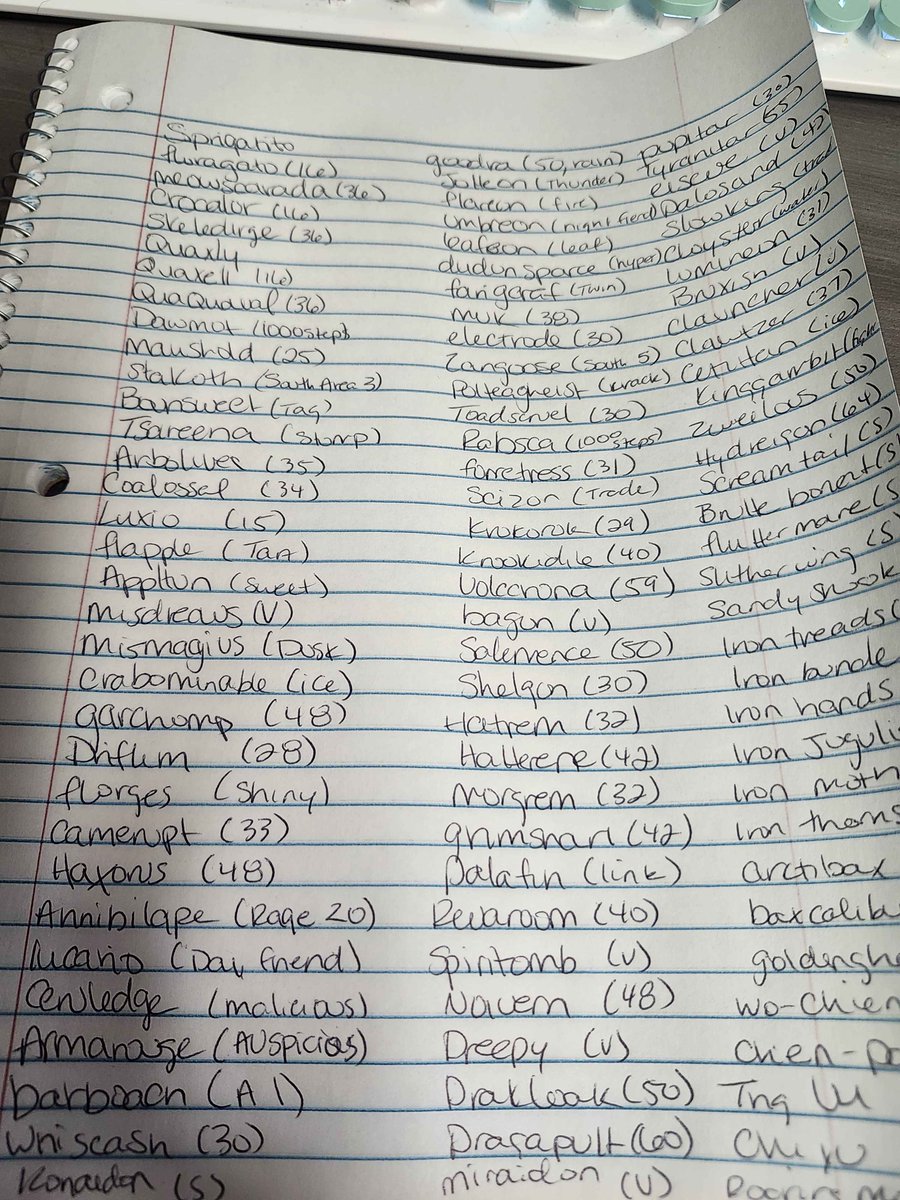 Sprigatito
fluragato (16)
meowscarada (36)
Crocalor (16)
Skeledirge (36)
Quaxly
Quaxell (16)
QuaQuaval (36)
Pawmot (1000 steps)
Maushold (25)
Slakoth (South Area 3)
Bounsweet (Tag)
Tsareena (Stomp)
Arboliver (35)
Coalossal (34)
Luxio (15)
flapple (Tart)
Appltun (sweet)
Misdreavs (V)
Mismagius (Dusk)
Crabominable (ice)
garchomp (48)
Driflim (28)
florges (Shiny)
Camerupt (33)
Haxorus (48)
Annihilape (Rage 20)
lucario (Day friend)
Ceruledge (malicious)
Armarouge (Auspicios)
barboach (A 1)
Whiscash (30)
Koraidon (S)
goodra (50, rain)
Jolteon (Thunder)
flareon (fire)
Umbreon (night friend)
leafeon (leaf)
dudunsparce (hyper)
farigaraf (Twin)
muk (38)
electrode (30)
Zangoose (South 5)
Polteagheist (crack)
Toadscruel (30)
Rabsca (1000 steps)
forretress (31)
Scizor (Trade)
Krokorok (29)
Krookidile (40)
Volcorona (59)
bagon (v)
Salemence (50)
Shelgon (30)
Hatrem (32)
Hatterene (42)
Morgrem (32)
grimsnarl (42)
palafin (link)
Revaroom (40)
Spiritomb (v)
Noivern (48)
Dreepy (v)
Drakloak (50)
Dragapult (60)
miraidon (v)
pupitar (30)
tyranitar 55)
eiscue (v)
Palosand (42)
Slowking (trade
Cloyster (water)
lumineon (31)
Bruxish (v)
clauncher (v)
Clawtzer (37)
Cetitan (ice)
Kinggambit
Zweilous (50)
Hydreigon (64)
Scream tail (S)
Brute bonent (S)
flutter mane (S
Slither wing (S)
Sandy Shock
Iron treads (
Iron bundle
Iron hands
Iron Juguli
Iron moth
Iron thorns
arctibax
baxcalib
goldenghe
wo-chien
Chien-pa
Ting Lu
Chi yu